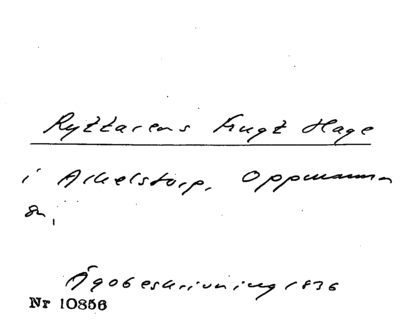 Ryttarens Frugt Hage
i Arkelstorp, Oppmanna
sn,
Ägobeskrivning 1836
Nr 10856